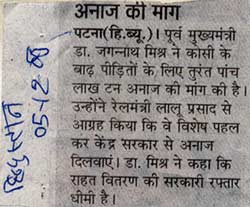 अनाज की मांग
पटना(हि.ब्यू.)। पूर्व मुख्यमंत्री
डा. जगन्नाथ मिश्र ने कोसी के
बाढ़ पीड़ितों के लिए तुरंत पांच
लाख टन अनाज की मांग की है।
उन्होंने रेलमंत्री लालू प्रसाद से
आग्रह किया कि वे विशेष पहल
कर केंद्र सरकार से अनाज
दिलवाएं। डा. मिश्र ने कहा कि
राहत वितरण की सरकारी रफ्तार
धीमी है।
हिन्दुस्तान